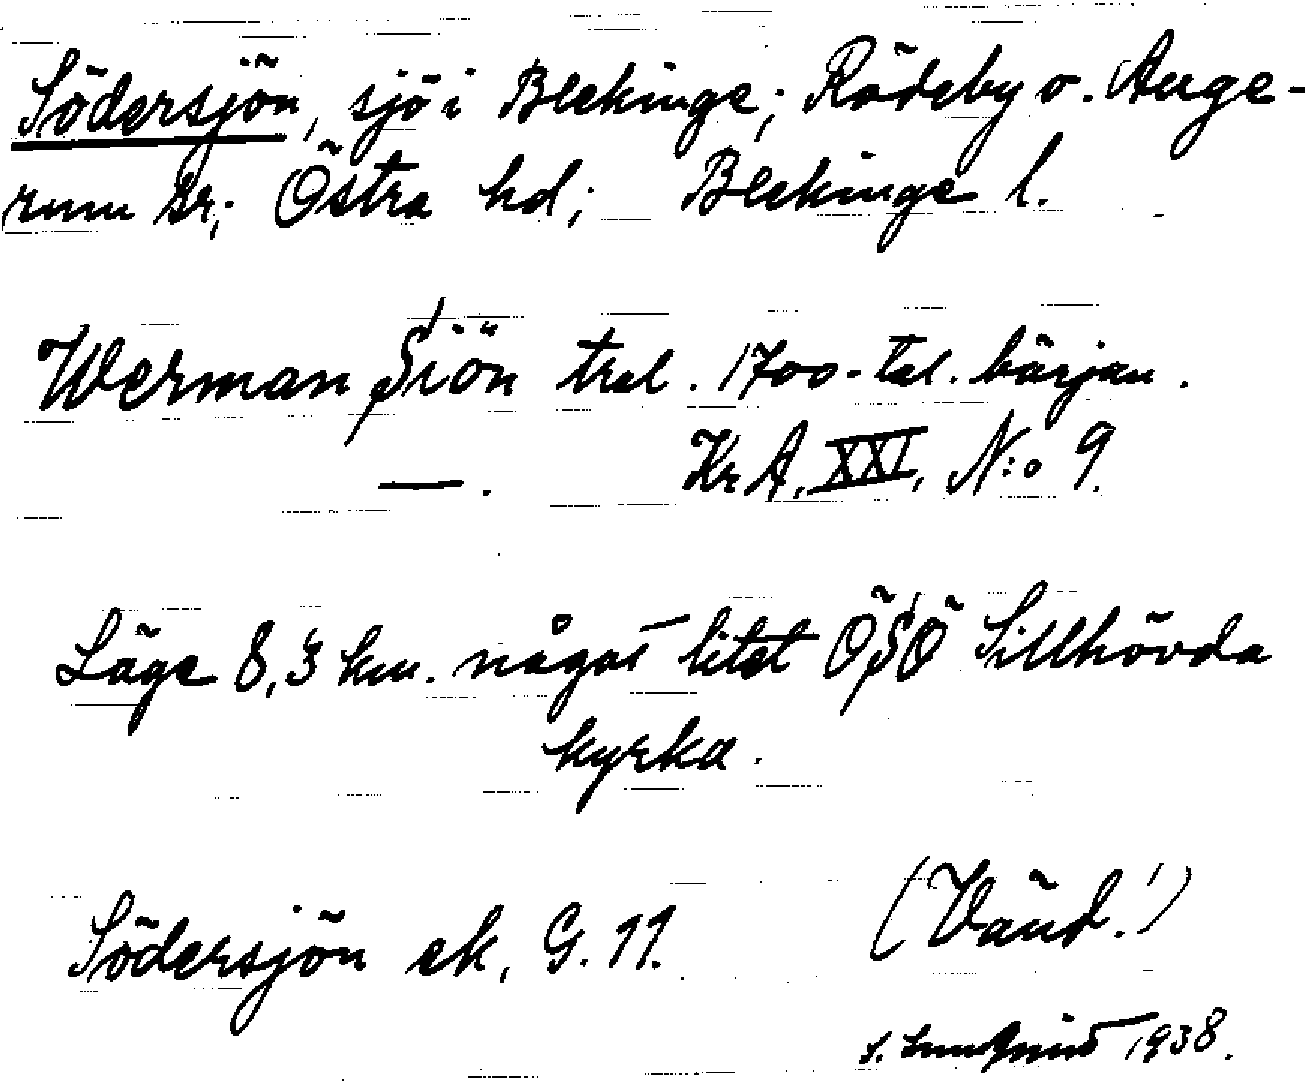 Södersjön, sjö i Blekinge; Rödeby o. Auge-
rum snr; Östra hd; Blekinge l.
Werman Siön tral. 1700-tal. början.
—. KrA, XXI, N:o 9.
Läge 8,3 km. något litet ÖSÖ Sillhövda
kyrka.
Södersjön ek, G. 11. (Vänd!)
1938.